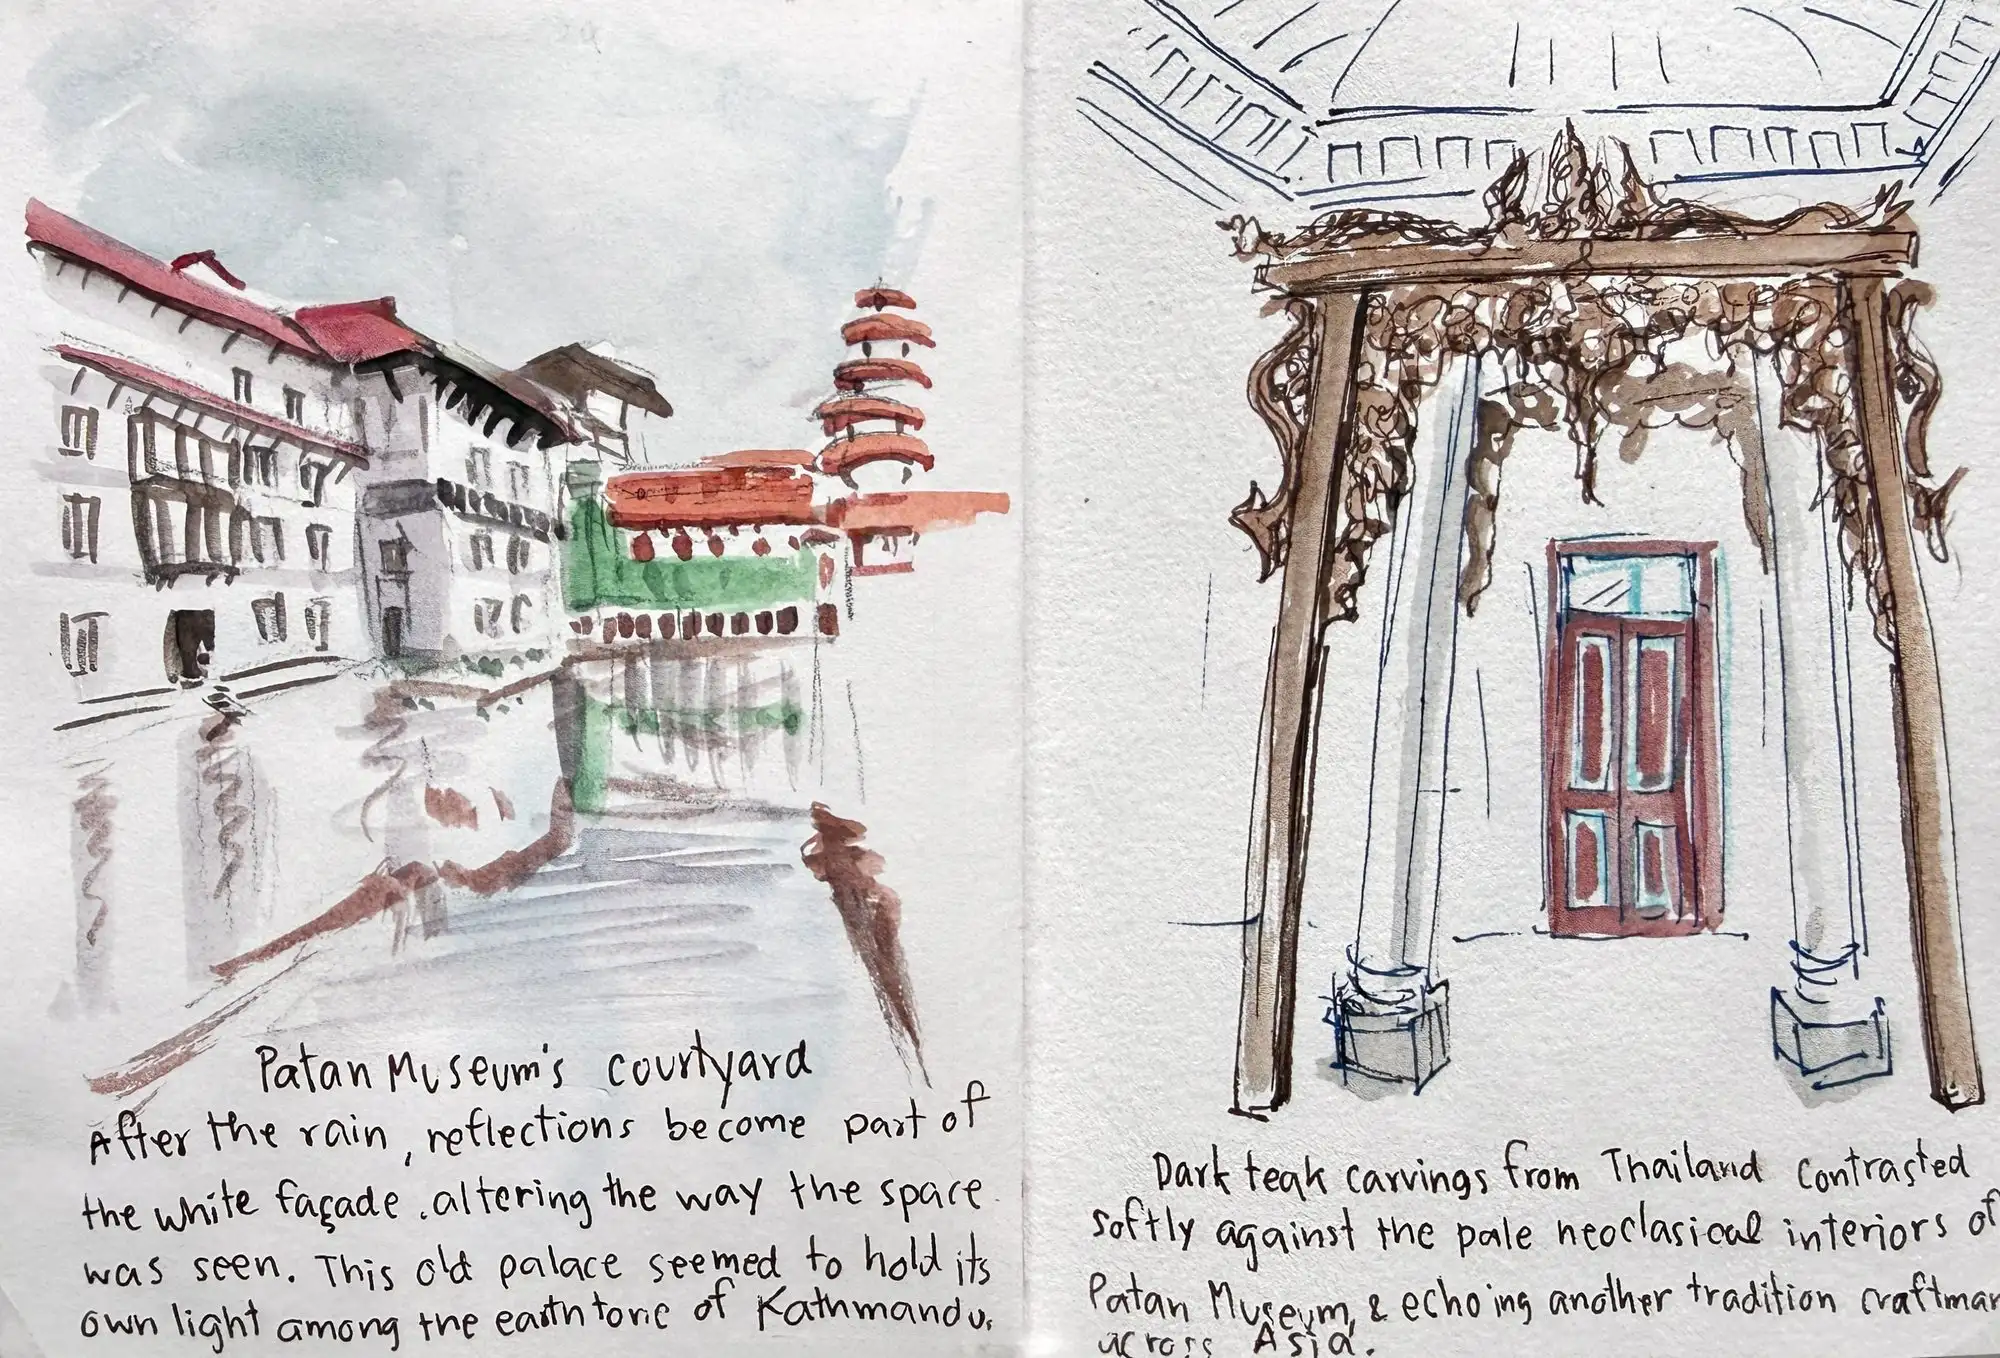 Patan Museum's courtyard
After the rain, reflections become part of
the white façade, altering the way the space
was seen. This old palace seemed to hold its
own light among the earth tone of Kathmandu.
Dark teak carvings from Thailand contrasted
softly against the pale neoclasical interiors of
Patan Museum, & echoing another tradition craftman
across Asia.